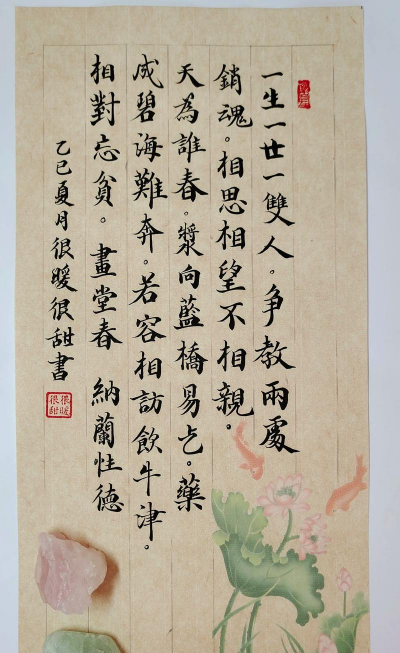 一生一世一雙人。争教兩處
銷魂。相思相望不相親。
天為誰春。漿向藍橋易乞。藥
成碧海難奔。若容相訪飲牛津。
相對忘貧。畫堂春 納蘭性德
乙巳夏月很暖很甜書
很暖
很甜